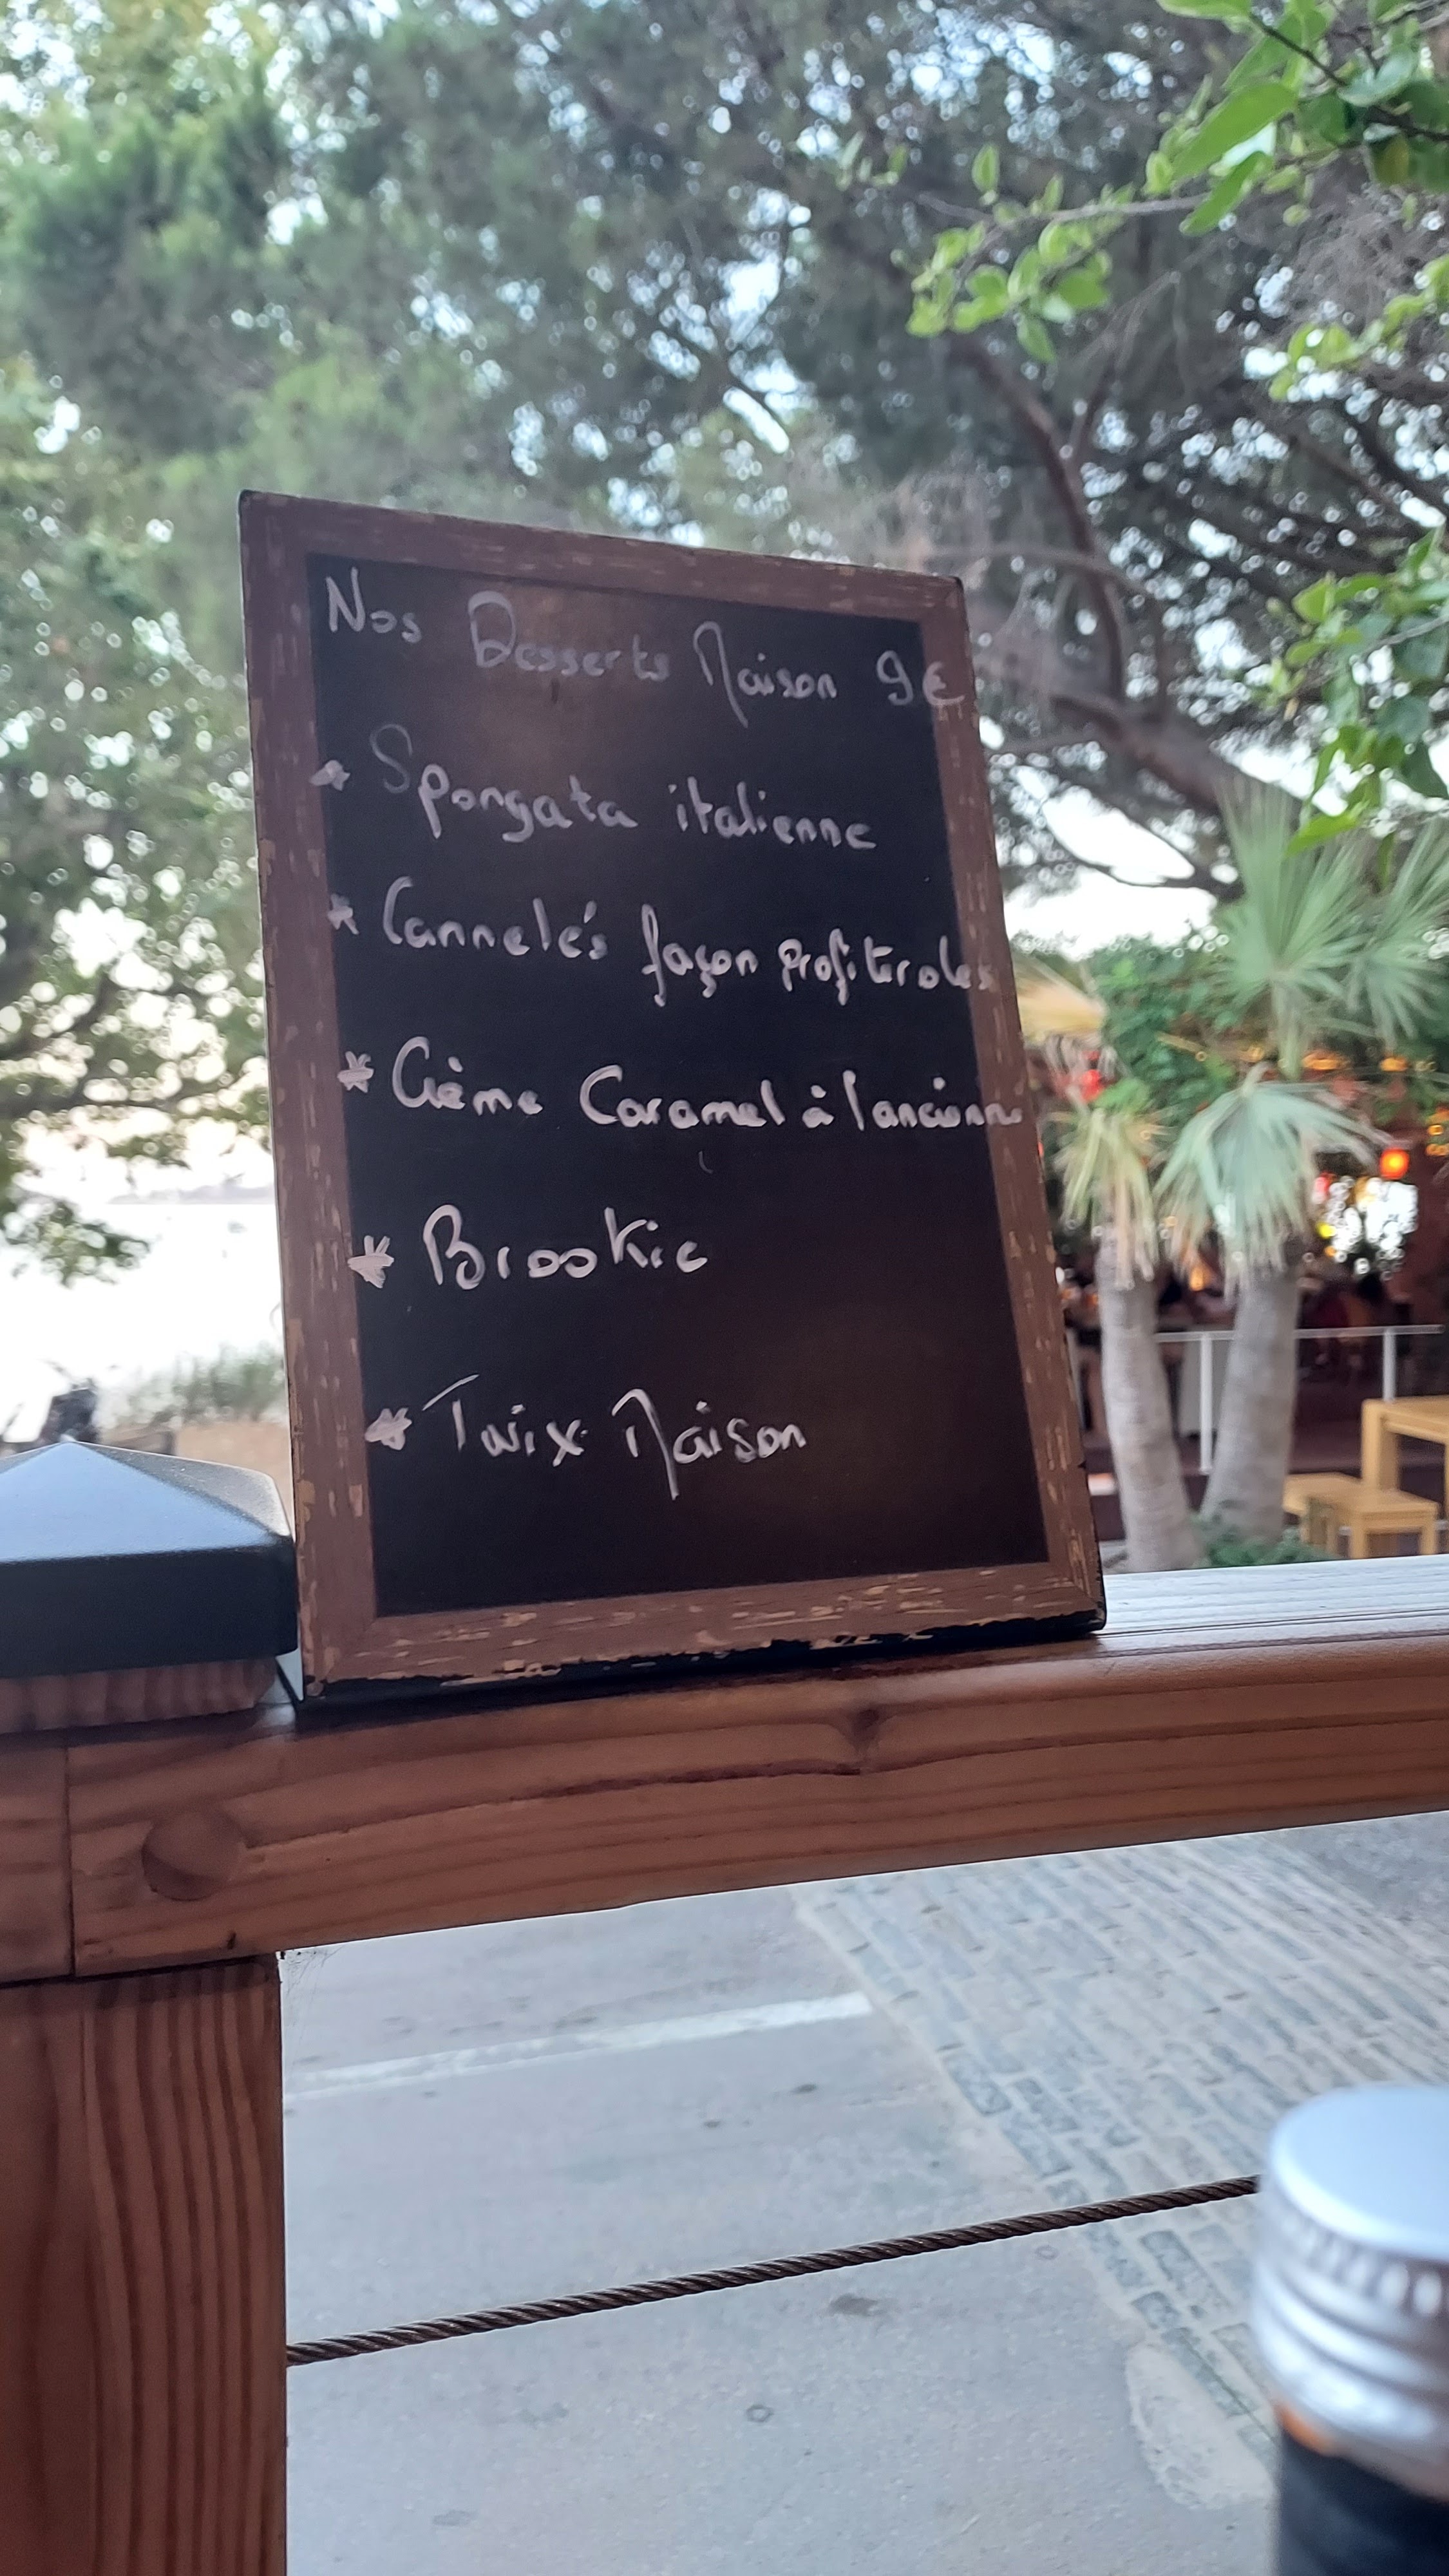 Nos Desserts Maison 9€
* Spongata italienne
* Cannelés façon profiteroles
* Crème Caramel à l'ancienne
* Brookie
* Twix Maison